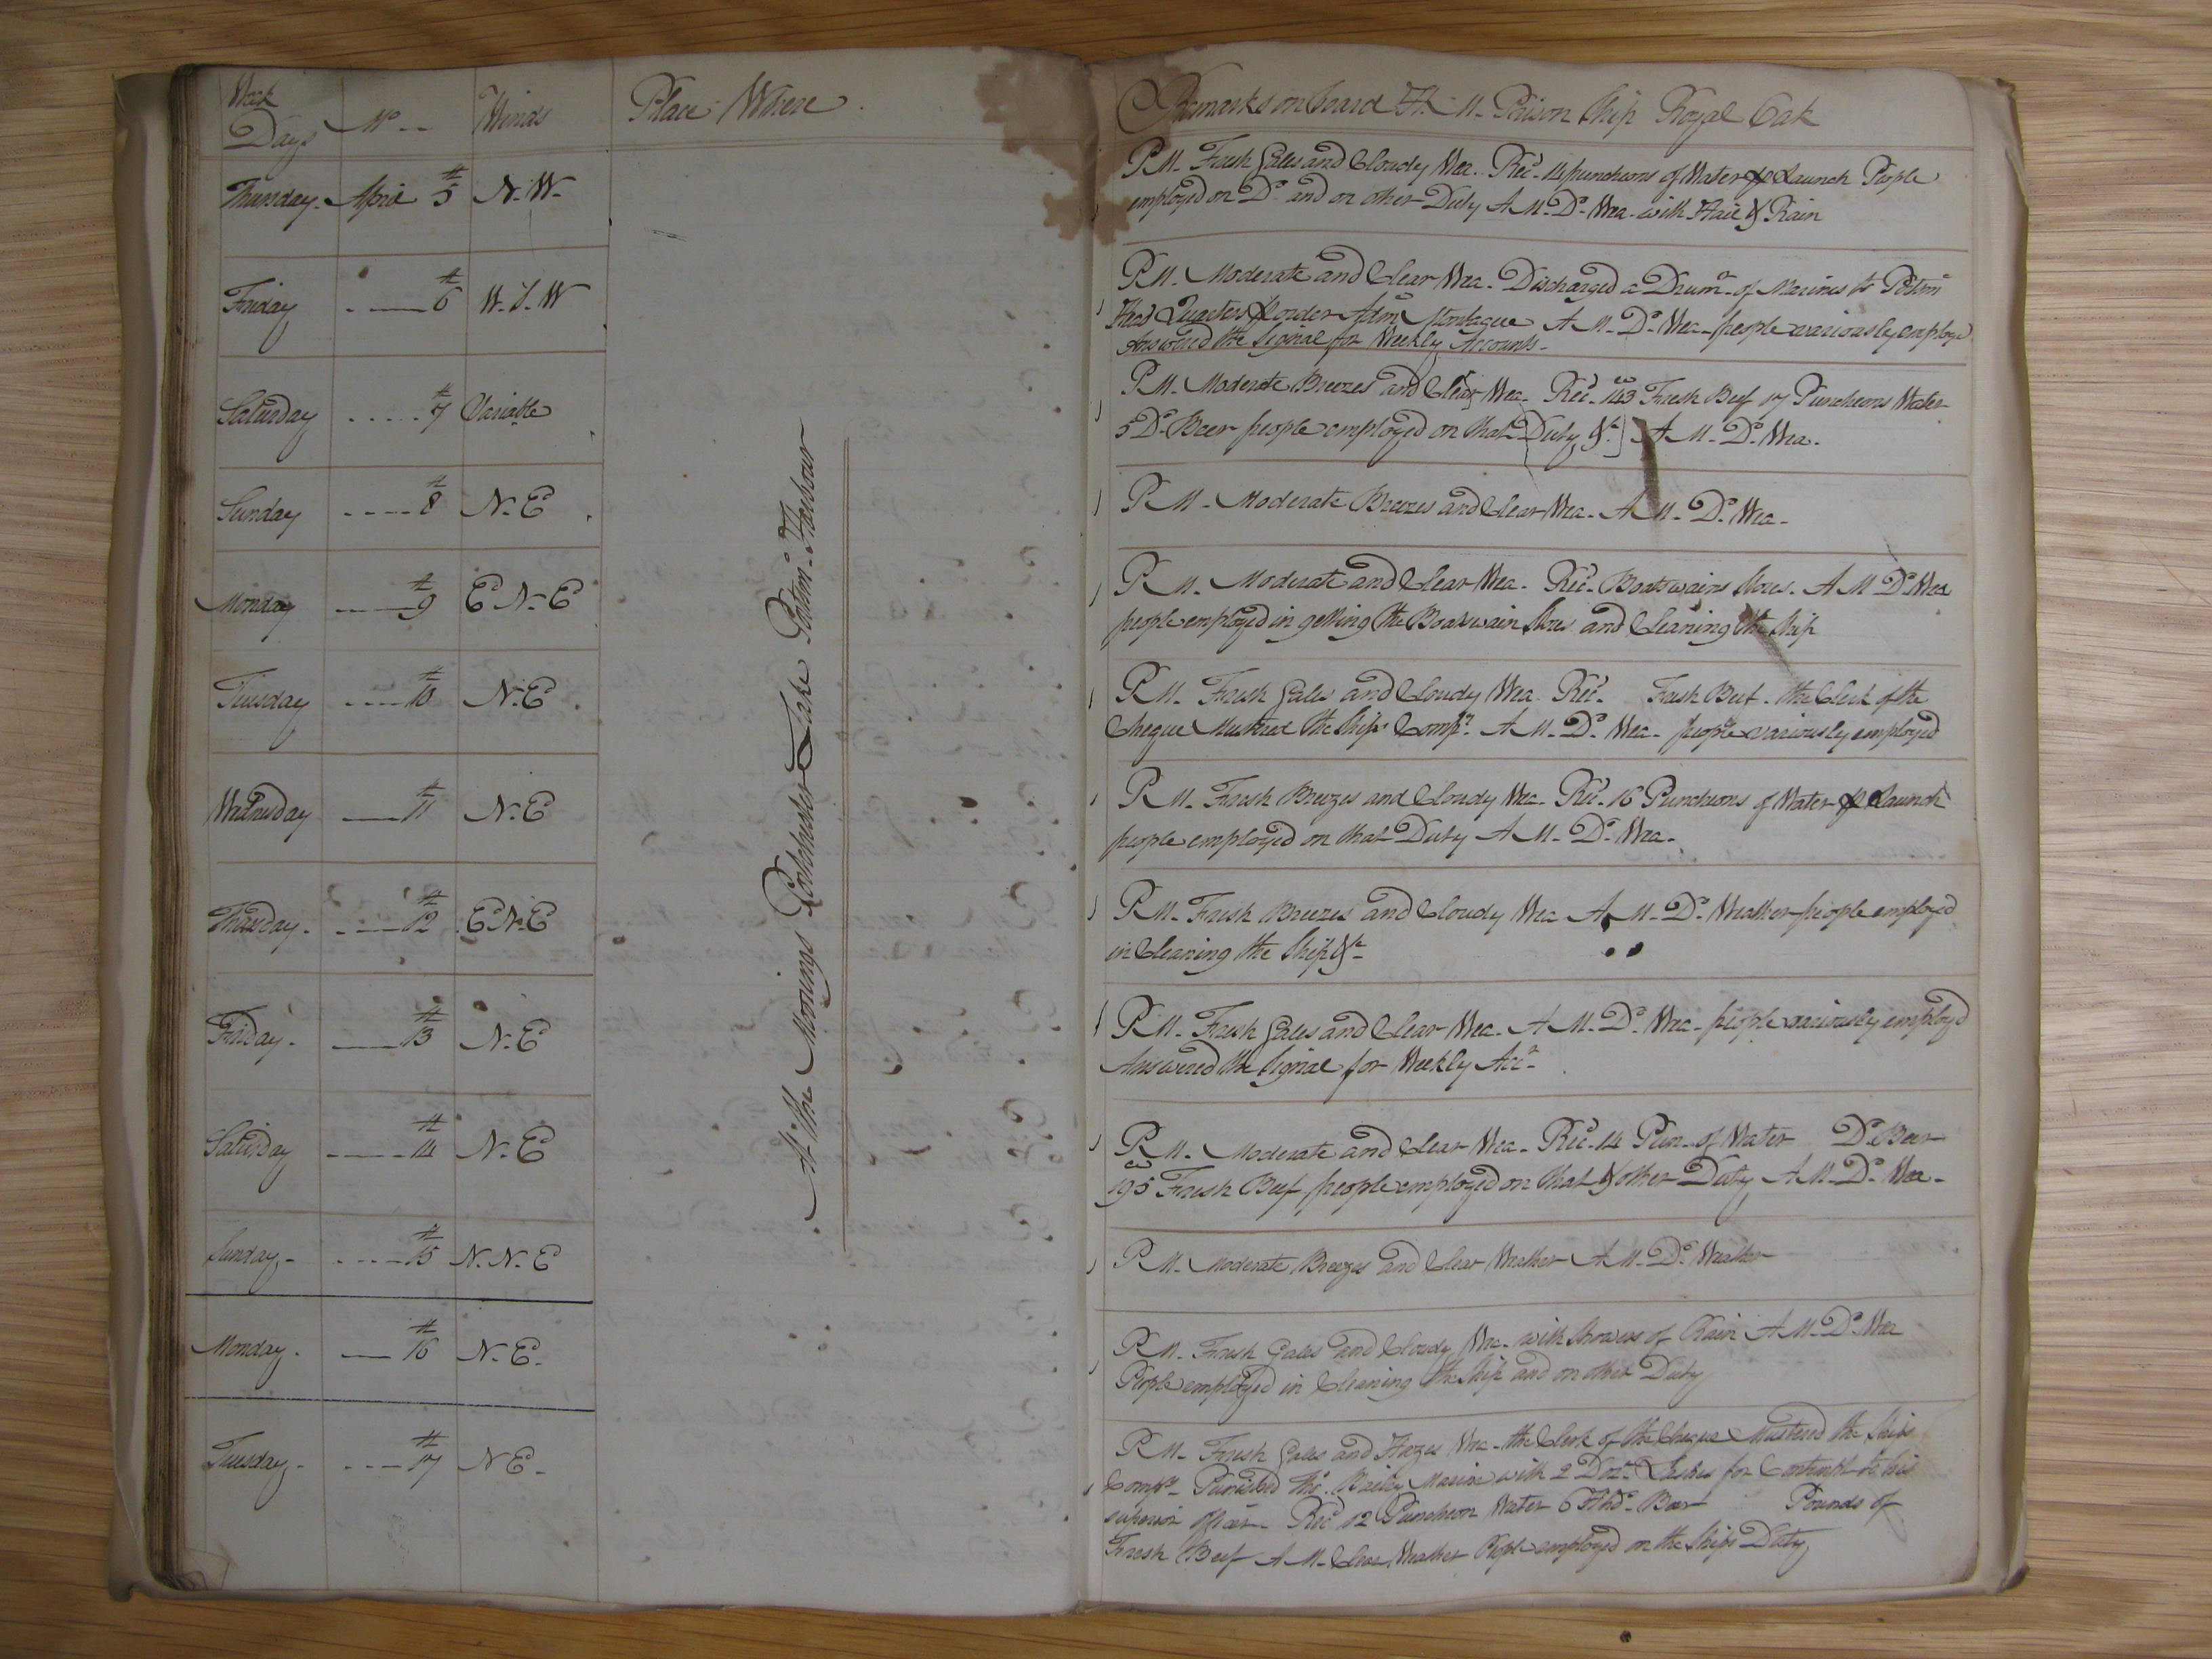 Week Days Mo -- Winds Place Where
Thursday - April 5th N. W.
Friday - 6th W. S. W
Saturday - 7th Variable
Sunday - 8th N. E
Monday - 9th E N. E
Tuesday - 10th N. E
Wednesday - 11th N. E
Thursday - 12th E N. E
Friday - 13th N. E
Saturday - 14th N. E
Sunday - 15th N. N. E
Monday - 16th N. E
Tuesday - 17th N E
At the Moorings Portchester Lake Portsmo Harbour
Remarks on board H. M. Prison Ship Royal Oak
P M. Fresh Gales and Cloudy Wea. Recd. 14 puncheons of Water p Launch People
employed on Do. and on other Duty A M. Do. Wea. with Hail & Rain
P M. Moderate and Clear Wea. Discharged a Drumr. of Marines to Portsmo
Head Quarters p order Adml Montague A M. Do. Wea. people variously employd
Answered the Signal for Weekly Accounts.
P M. Moderate Breezes and Clear Wea. Recd. 143 Fresh Beef 17 Puncheons Water
5 Do. Beer people employed on that Duty &c. A M. Do. Wea.
P M. Moderate Breezes and Clear Wea. A M. Do. Wea.
P M. Moderate and Clear Wea. Recd. Boatswains Stores. A M Do. Wea
people employed in getting the Boatswain Stores and Cleaning the Ship
P M. Fresh Gales and Cloudy Wea. Recd. Fresh Beef. the Clerk of the
Cheque Mustered the Ships Compy. A M. Do. Wea. people variously employed
P M. Fresh Breezes and Cloudy Wea. Recd. 16 Puncheons of Water p Launch
people employed on that Duty A M. Do. Wea.
P M. Fresh Breezes and Cloudy Wea A M. Do. Weather people employed
in Cleaning the Ship &c
P M. Fresh Gales and Clear Wea. A M. Do. Wea. people variously employd
Answered the Signal for Weekly Acct
P M. Moderate and Clear Wea. Recd. 14 Pun. of Water Do. Beer
195 Fresh Beef people employed on that & other Duty A M. Do. Wea.
P M. Moderate Breezes and Clear Weather A M. Do. Weather
P M. Fresh Gales and Cloudy Wea. with Showers of Rain A M. Do. Wea
People employed in Cleaning the Ship and on other Duty
P M. Fresh Gales and Wea. the Clerk of the Cheque Mustered the Ships
Compy. Punished Thos. Bailey Marine with 2 Dozn. Lashes for Contempt to his
superior officer. Recd 12 Puncheon Water 6 Hhds. Beer Pounds of
Fresh Beef A M. Clear Weather People employed on the Ships Duty